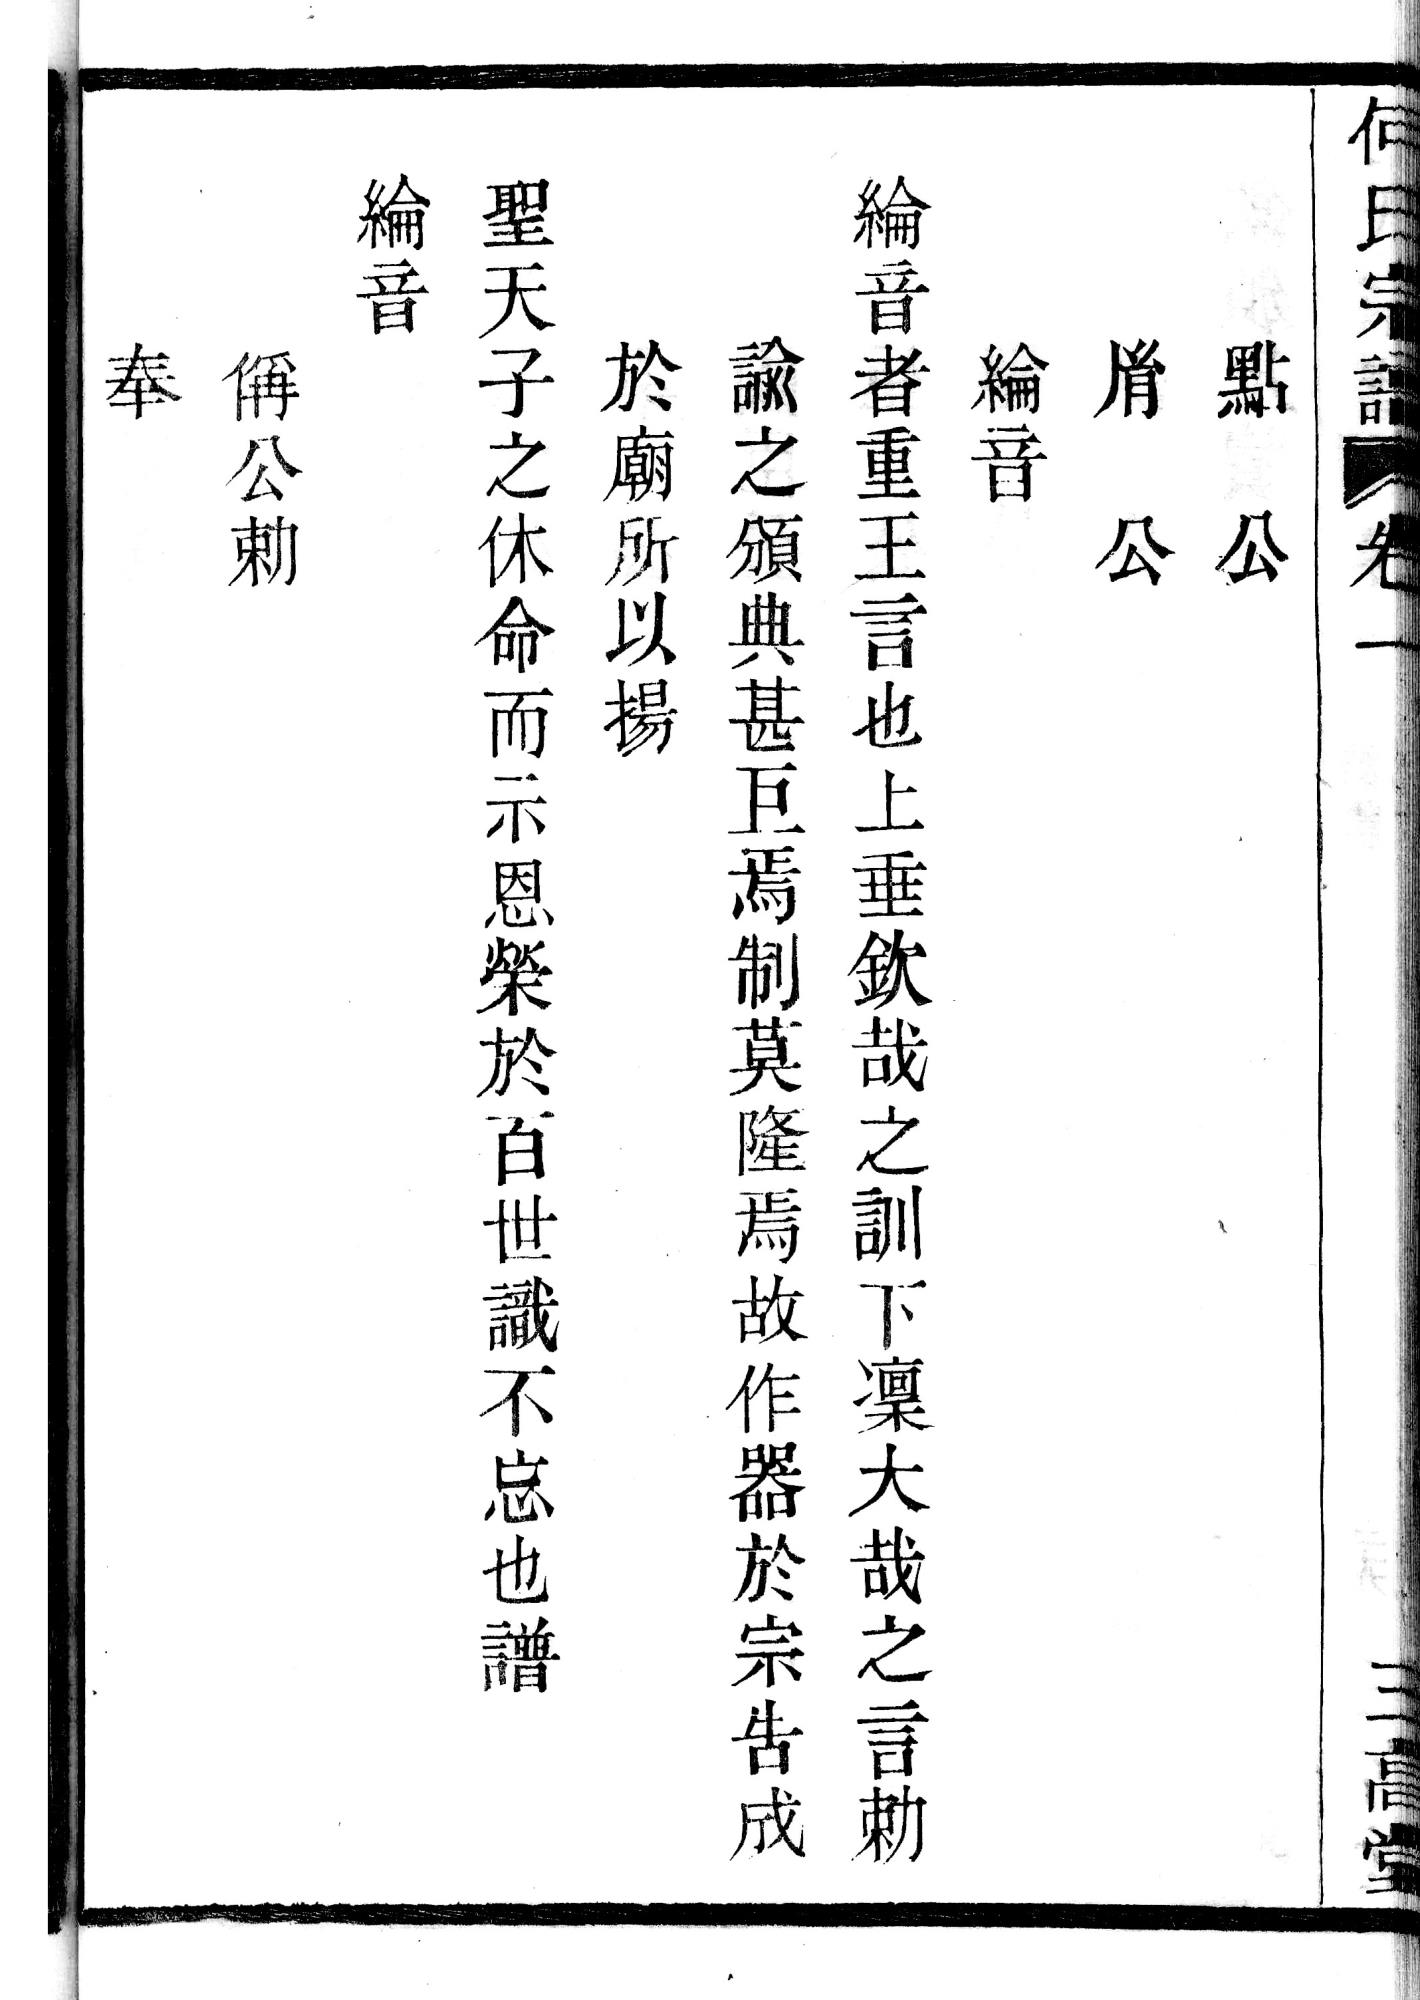 何氏宗譜 卷一 三高堂
點公
㳙公
綸音
綸音者重王言也上垂欽哉之訓下凜大哉之言勅
諭之頒典甚巨焉制莫隆焉故作器於宗告成
於廟所以揚
聖天子之休命而示恩榮於百世識不忘也譜
綸音
偁公勅
奉